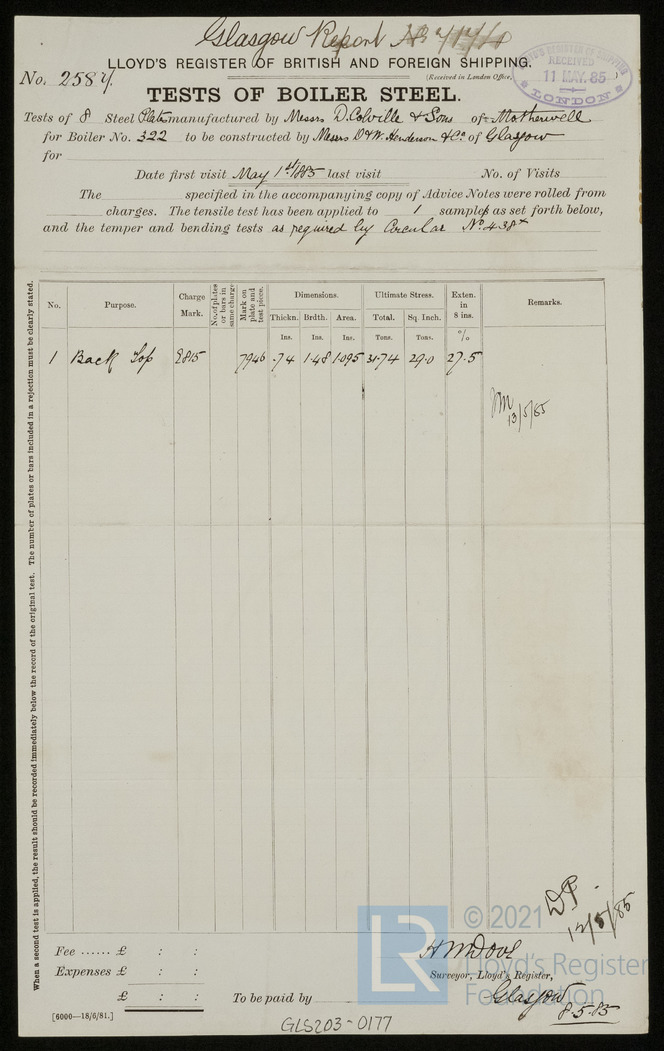 Glasgow Report No
LLOYD'S REGISTER OF BRITISH AND FOREIGN SHIPPING.
No. 2587.
(Received in London Office,
LLOYD'S REGISTER OF SHIPPING
RECEIVED
11 MAY. 85
LONDON
TESTS OF BOILER STEEL.
Tests of 8 Steel Plates manufactured by Messrs D. Colville & Sons of Motherwell
for Boiler No. 322 to be constructed by Messrs D & W. Henderson & Co. of Glasgow
for
Date first visit May 1st 1885 last visit No. of Visits
The specified in the accompanying copy of Advice Notes were rolled from
charges. The tensile test has been applied to 1 samples as set forth below,
and the temper and bending tests as required by Circular No. 438*
When a second test is applied, the result should be recorded immediately below the record of the original test. The number of plates or bars included in a rejection must be clearly stated.
No. Purpose. Charge Mark. No. of plates or bars in same charge Mark on plate and test piece. Dimensions. Ultimate Stress. Exten. in 8 ins. Remarks.
Thickn. Brdth. Area. Total. Sq. Inch.
Ins. Ins. Ins. Tons. Tons. %
1 Back Top 9815 7946 .74 1.48 1.095 31.74 29.0 27.5
13/5/85
12/5/85
© 2021
Lloyd's Register
Foundation
LR
Fee ...... £ : :
Expenses £ : :
£ : :
To be paid by
Surveyor, Lloyd's Register,
Glasgow
8.5.85
[6000—18/6/81.]
GLS203-0177